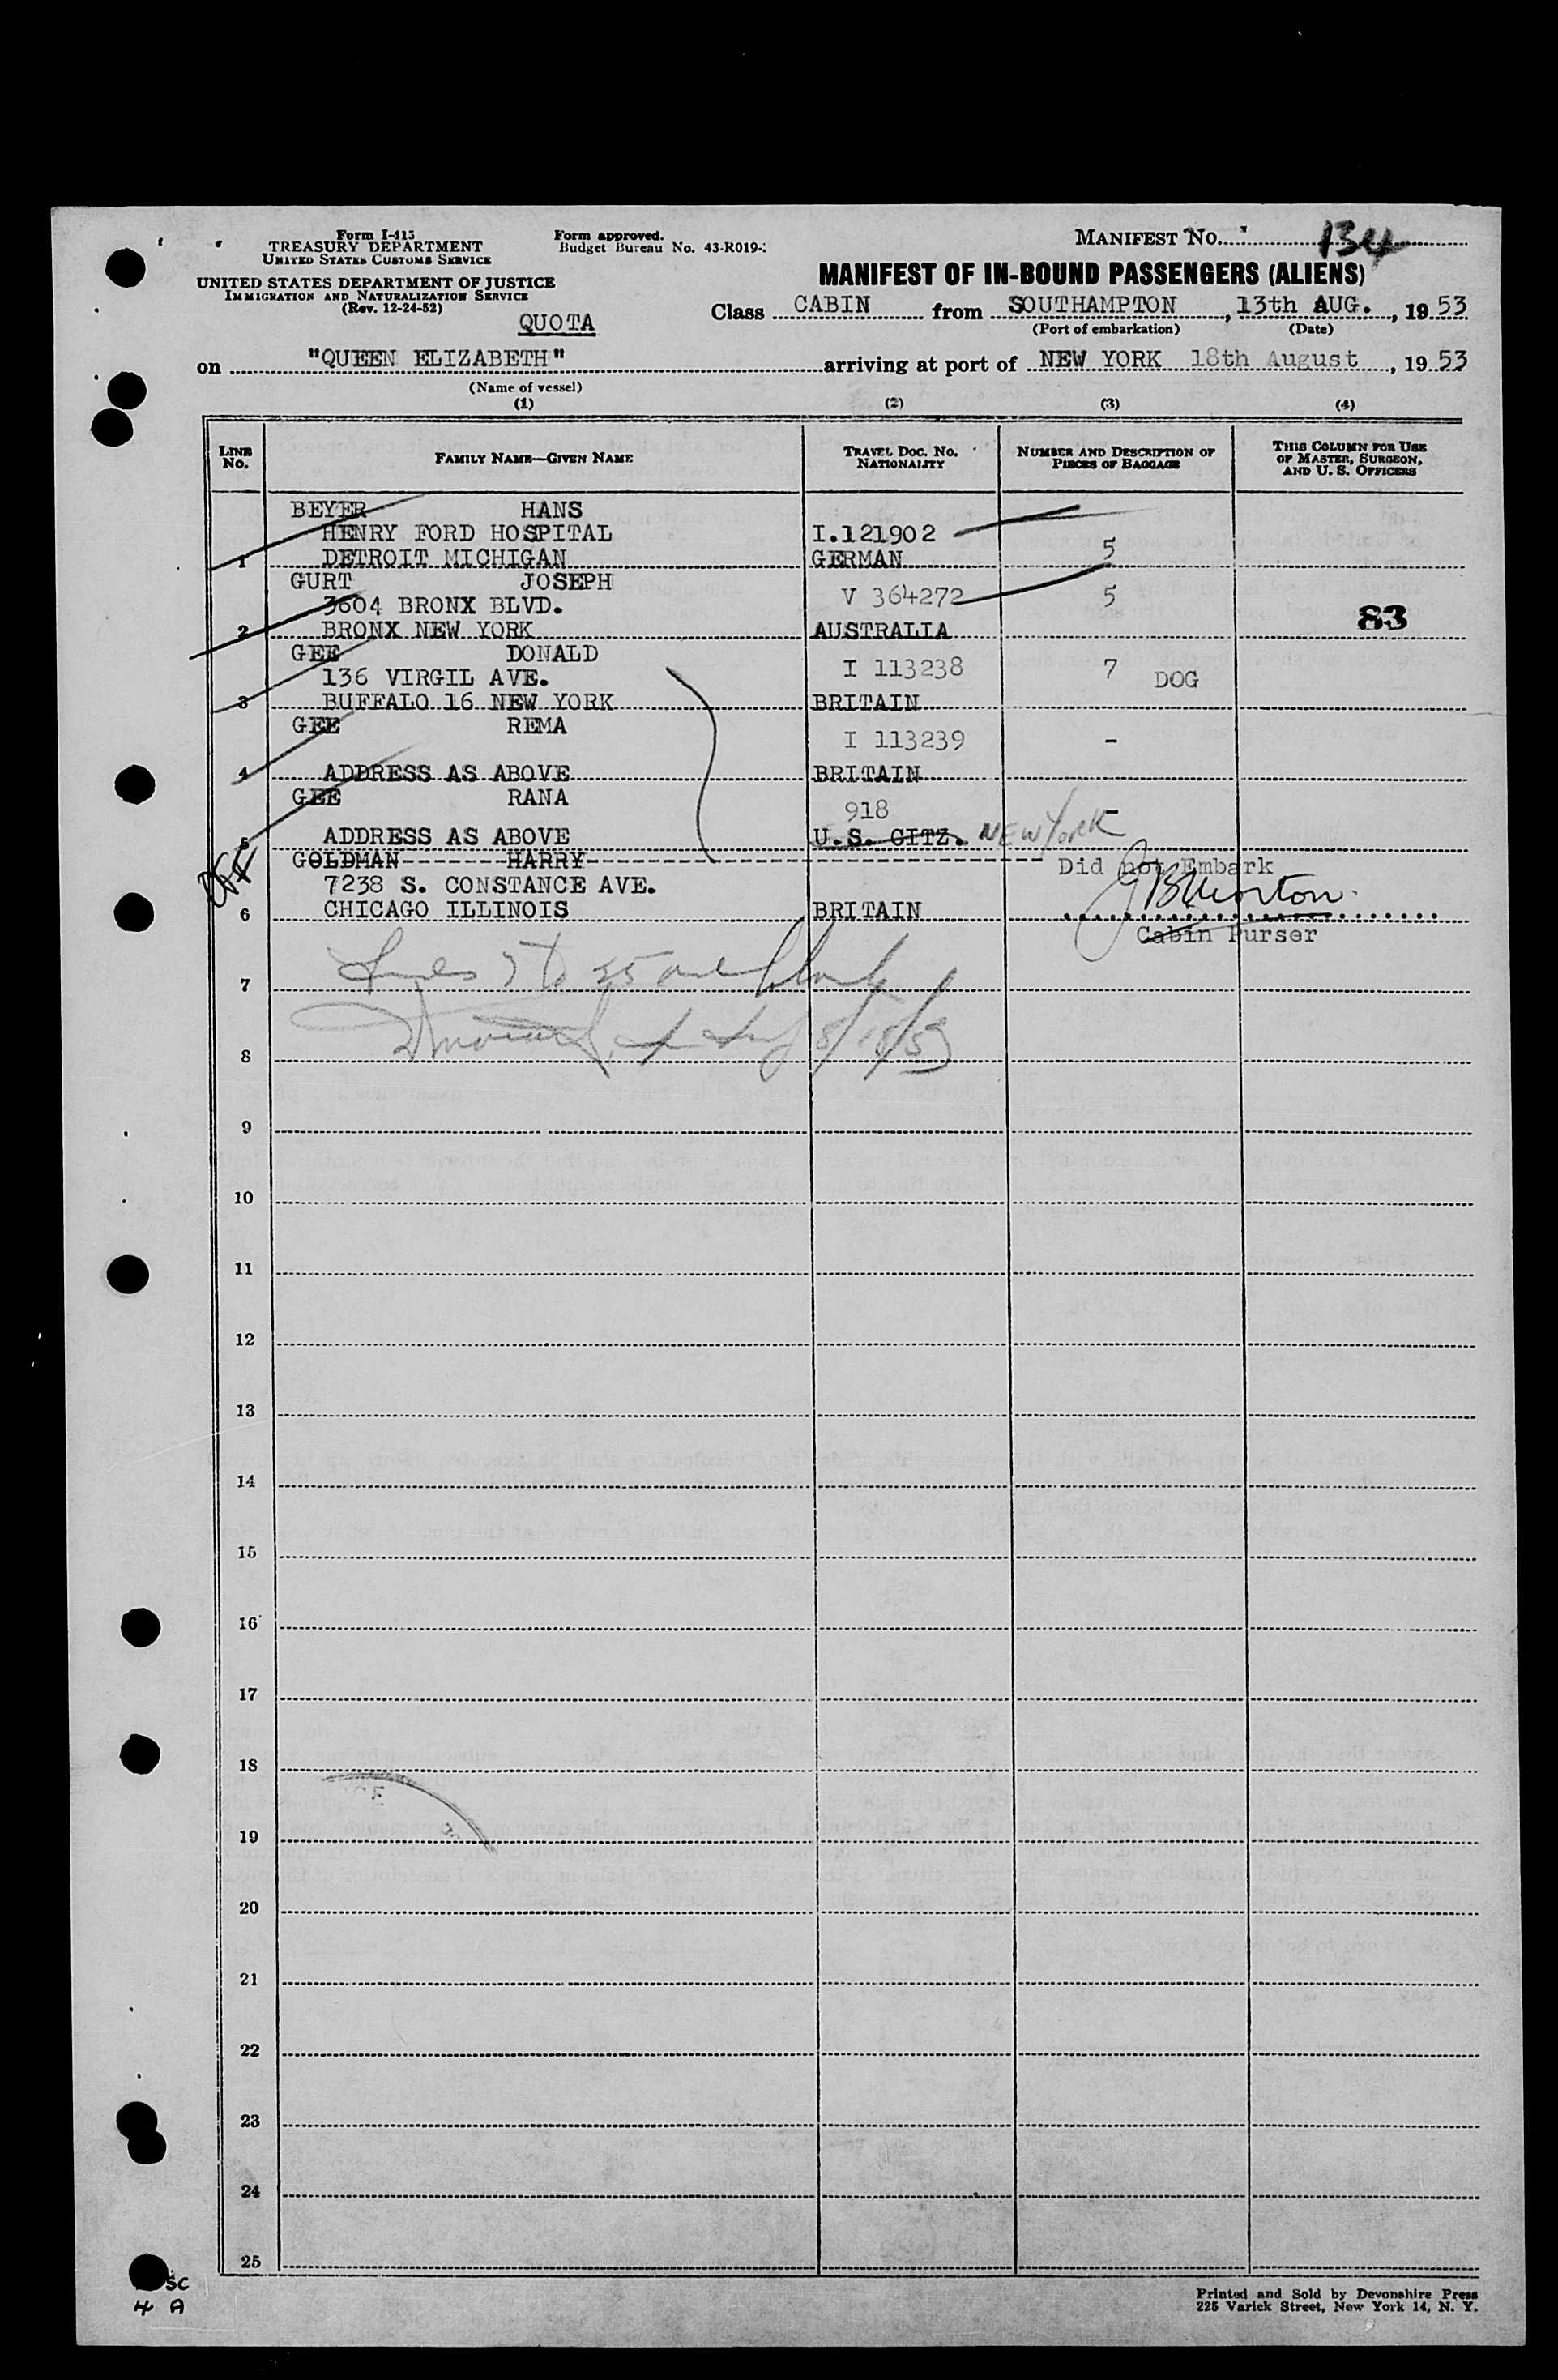 Form I-415
TREASURY DEPARTMENT
UNITED STATES CUSTOMS SERVICE
Form approved.
Budget Bureau No. 43-R019-
UNITED STATES DEPARTMENT OF JUSTICE
IMMIGRATION AND NATURALIZATION SERVICE
(Rev. 12-24-52)
MANIFEST No. 134
MANIFEST OF IN-BOUND PASSENGERS (ALIENS)
QUOTA
Class CABIN from SOUTHAMPTON, 13th AUG., 1953
(Port of embarkation) (Date)
on "QUEEN ELIZABETH" arriving at port of NEW YORK 18th August, 1953
(Name of vessel)
(1) (2) (3) (4)
LINE No. FAMILY NAME—GIVEN NAME TRAVEL DOC. NO. NATIONALITY NUMBER AND DESCRIPTION OF PIECES OF BAGGAGE THIS COLUMN FOR USE OF MASTER, SURGEON, AND U. S. OFFICERS
BEYER HANS
HENRY FORD HOSPITAL I.121902
1 DETROIT MICHIGAN GERMAN 5
GURT JOSEPH
3604 BRONX BLVD. V 364272 5
2 BRONX NEW YORK AUSTRALIA 83
GEE DONALD
136 VIRGIL AVE. I 113238 7 DOG
3 BUFFALO 16 NEW YORK BRITAIN
GEE REMA
I 113239 -
4 ADDRESS AS ABOVE BRITAIN
GEE RANA
918 -
5 ADDRESS AS ABOVE U.S. CITZ. NEW YORK
GOLDMAN-------HARRY------------------------------ Did not Embark
7238 S. CONSTANCE AVE.
6 CHICAGO ILLINOIS BRITAIN
Cabin Purser
7 Lines 7 to 25 are blank
8 8/18/53
9
10
11
12
13
14
15
16
17
18
19
20
21
22
23
24
25
SC
4 A
Printed and Sold by Devonshire Press
225 Varick Street, New York 14, N. Y.